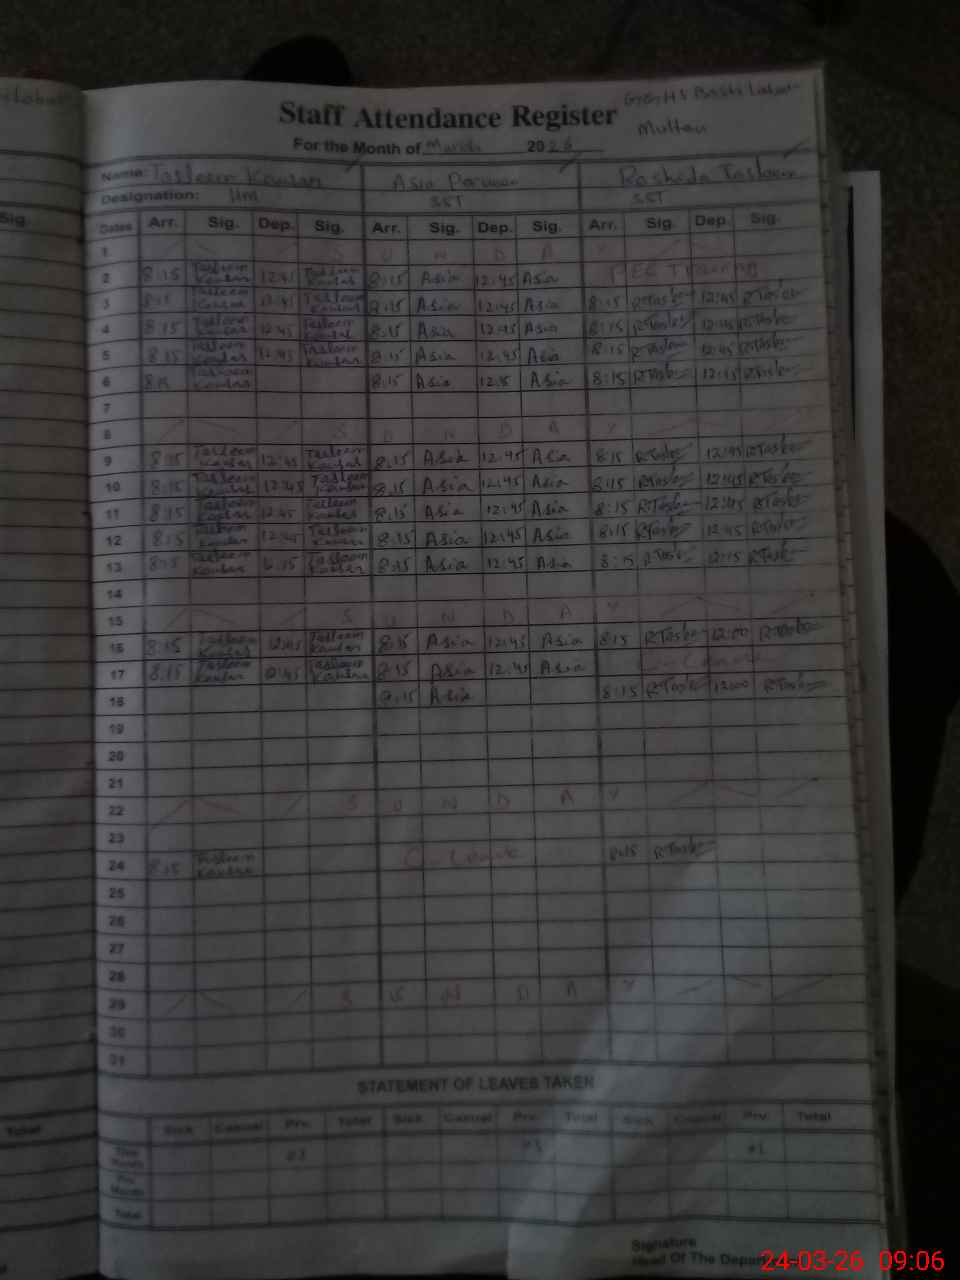 Staff Attendance Register
Multan
For the Month of March 2026
Name: Tasleem Kousar Asia Perveen Rasheda Tasleem
Designation: HM SST SST
Dates Arr. Sig. Dep. Sig. Arr. Sig. Dep. Sig. Arr. Sig. Dep. Sig.
1 S U N D A Y
2 8:15 Tasleem Kousar 12:45 Tasleem Kousar 8:15 Asia 12:45 Asia Training
3 8:15 Tasleem Kousar 12:45 Tasleem Kousar 8:15 Asia 12:45 Asia 8:15 R.Tasle 12:45 R.Tasle
4 8:15 Tasleem Kousar 12:45 Tasleem Kousar 8:15 Asia 12:45 Asia 8:15 R.Tasle 12:45 R.Tasle
5 8:15 Tasleem Kousar 12:45 Tasleem Kousar 8:15 Asia 12:45 Asia 8:15 R.Tasle 12:45 R.Tasle
6 8:15 Tasleem Kousar 8:15 Asia 12:15 Asia 8:15 R.Tasle 12:45 R.Tasle
7
8 S U N D A Y
9 8:15 Tasleem Kousar 12:45 Tasleem Kousar 8:15 Asia 12:45 Asia 8:15 R.Tasle 12:45 R.Tasle
10 8:15 Tasleem Kousar 12:45 Tasleem Kousar 8:15 Asia 12:45 Asia 8:15 R.Tasle 12:45 R.Tasle
11 8:15 Tasleem Kousar 12:45 Tasleem Kousar 8:15 Asia 12:45 Asia 8:15 R.Tasle 12:45 R.Tasle
12 8:15 Tasleem Kousar 12:45 Tasleem Kousar 8:15 Asia 12:45 Asia 8:15 R.Tasle 12:45 R.Tasle
13 8:15 Tasleem Kousar 12:15 Tasleem Kousar 8:15 Asia 12:45 Asia 8:15 R.Tasle 12:15 R.Tasle
14
15 S U N D A Y
16 8:15 Tasleem Kousar 12:45 Tasleem Kousar 8:15 Asia 12:45 Asia 8:15 R.Tasle 12:00 R.Tasle
17 8:15 Tasleem Kousar 12:45 Tasleem Kousar 8:15 Asia 12:45 Asia C-Leave
18 8:15 Asia 8:15 R.Tasle 12:00 R.Tasle
19
20
21
22 S U N D A Y
23
24 8:15 Tasleem Kousar C-Leave 8:15 R.Tasle
25
26
27
28
29 S U N D A Y
30
31
STATEMENT OF LEAVES TAKEN
Sick Casual Prv. Total Sick Casual Prv. Total Sick Casual Prv. Total
This Month
Prv. Month
Total
Signature
Head Of The Depart
24-03-26 09:06